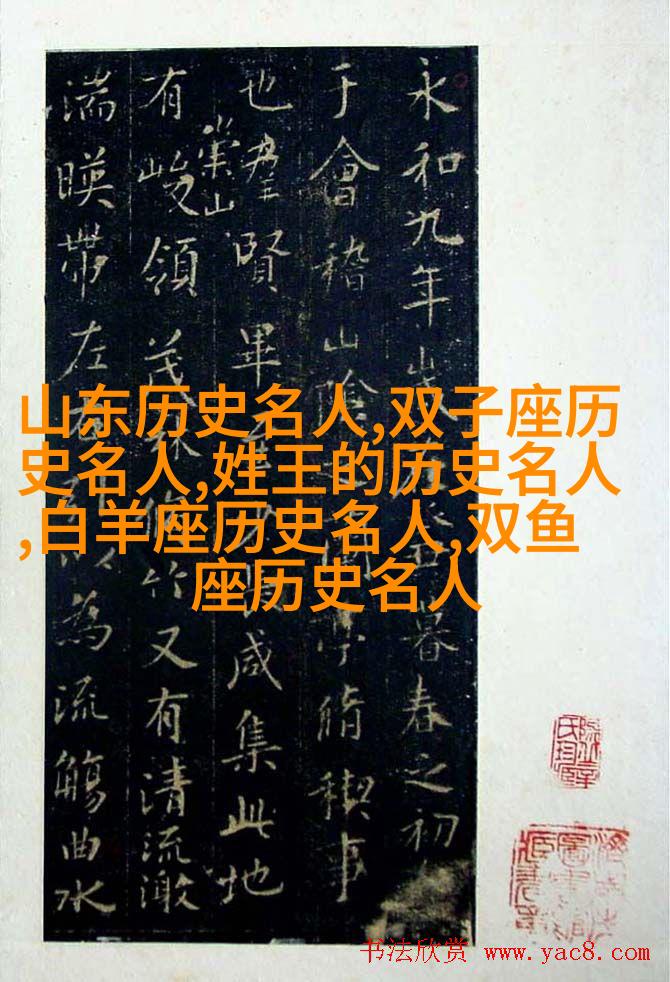 永和九年歲暮春之初
于會稽山陰亭脩稧事
也羣賢畢咸集此地
有崇山峻領茂林脩竹又有清流激
湍暎帶左右為流觴曲水
山东历史名人,双子座历
史名人,姓王的历史名人
,白羊座历史名人,双鱼
座历史名人
书法欣赏 www.yac8.com